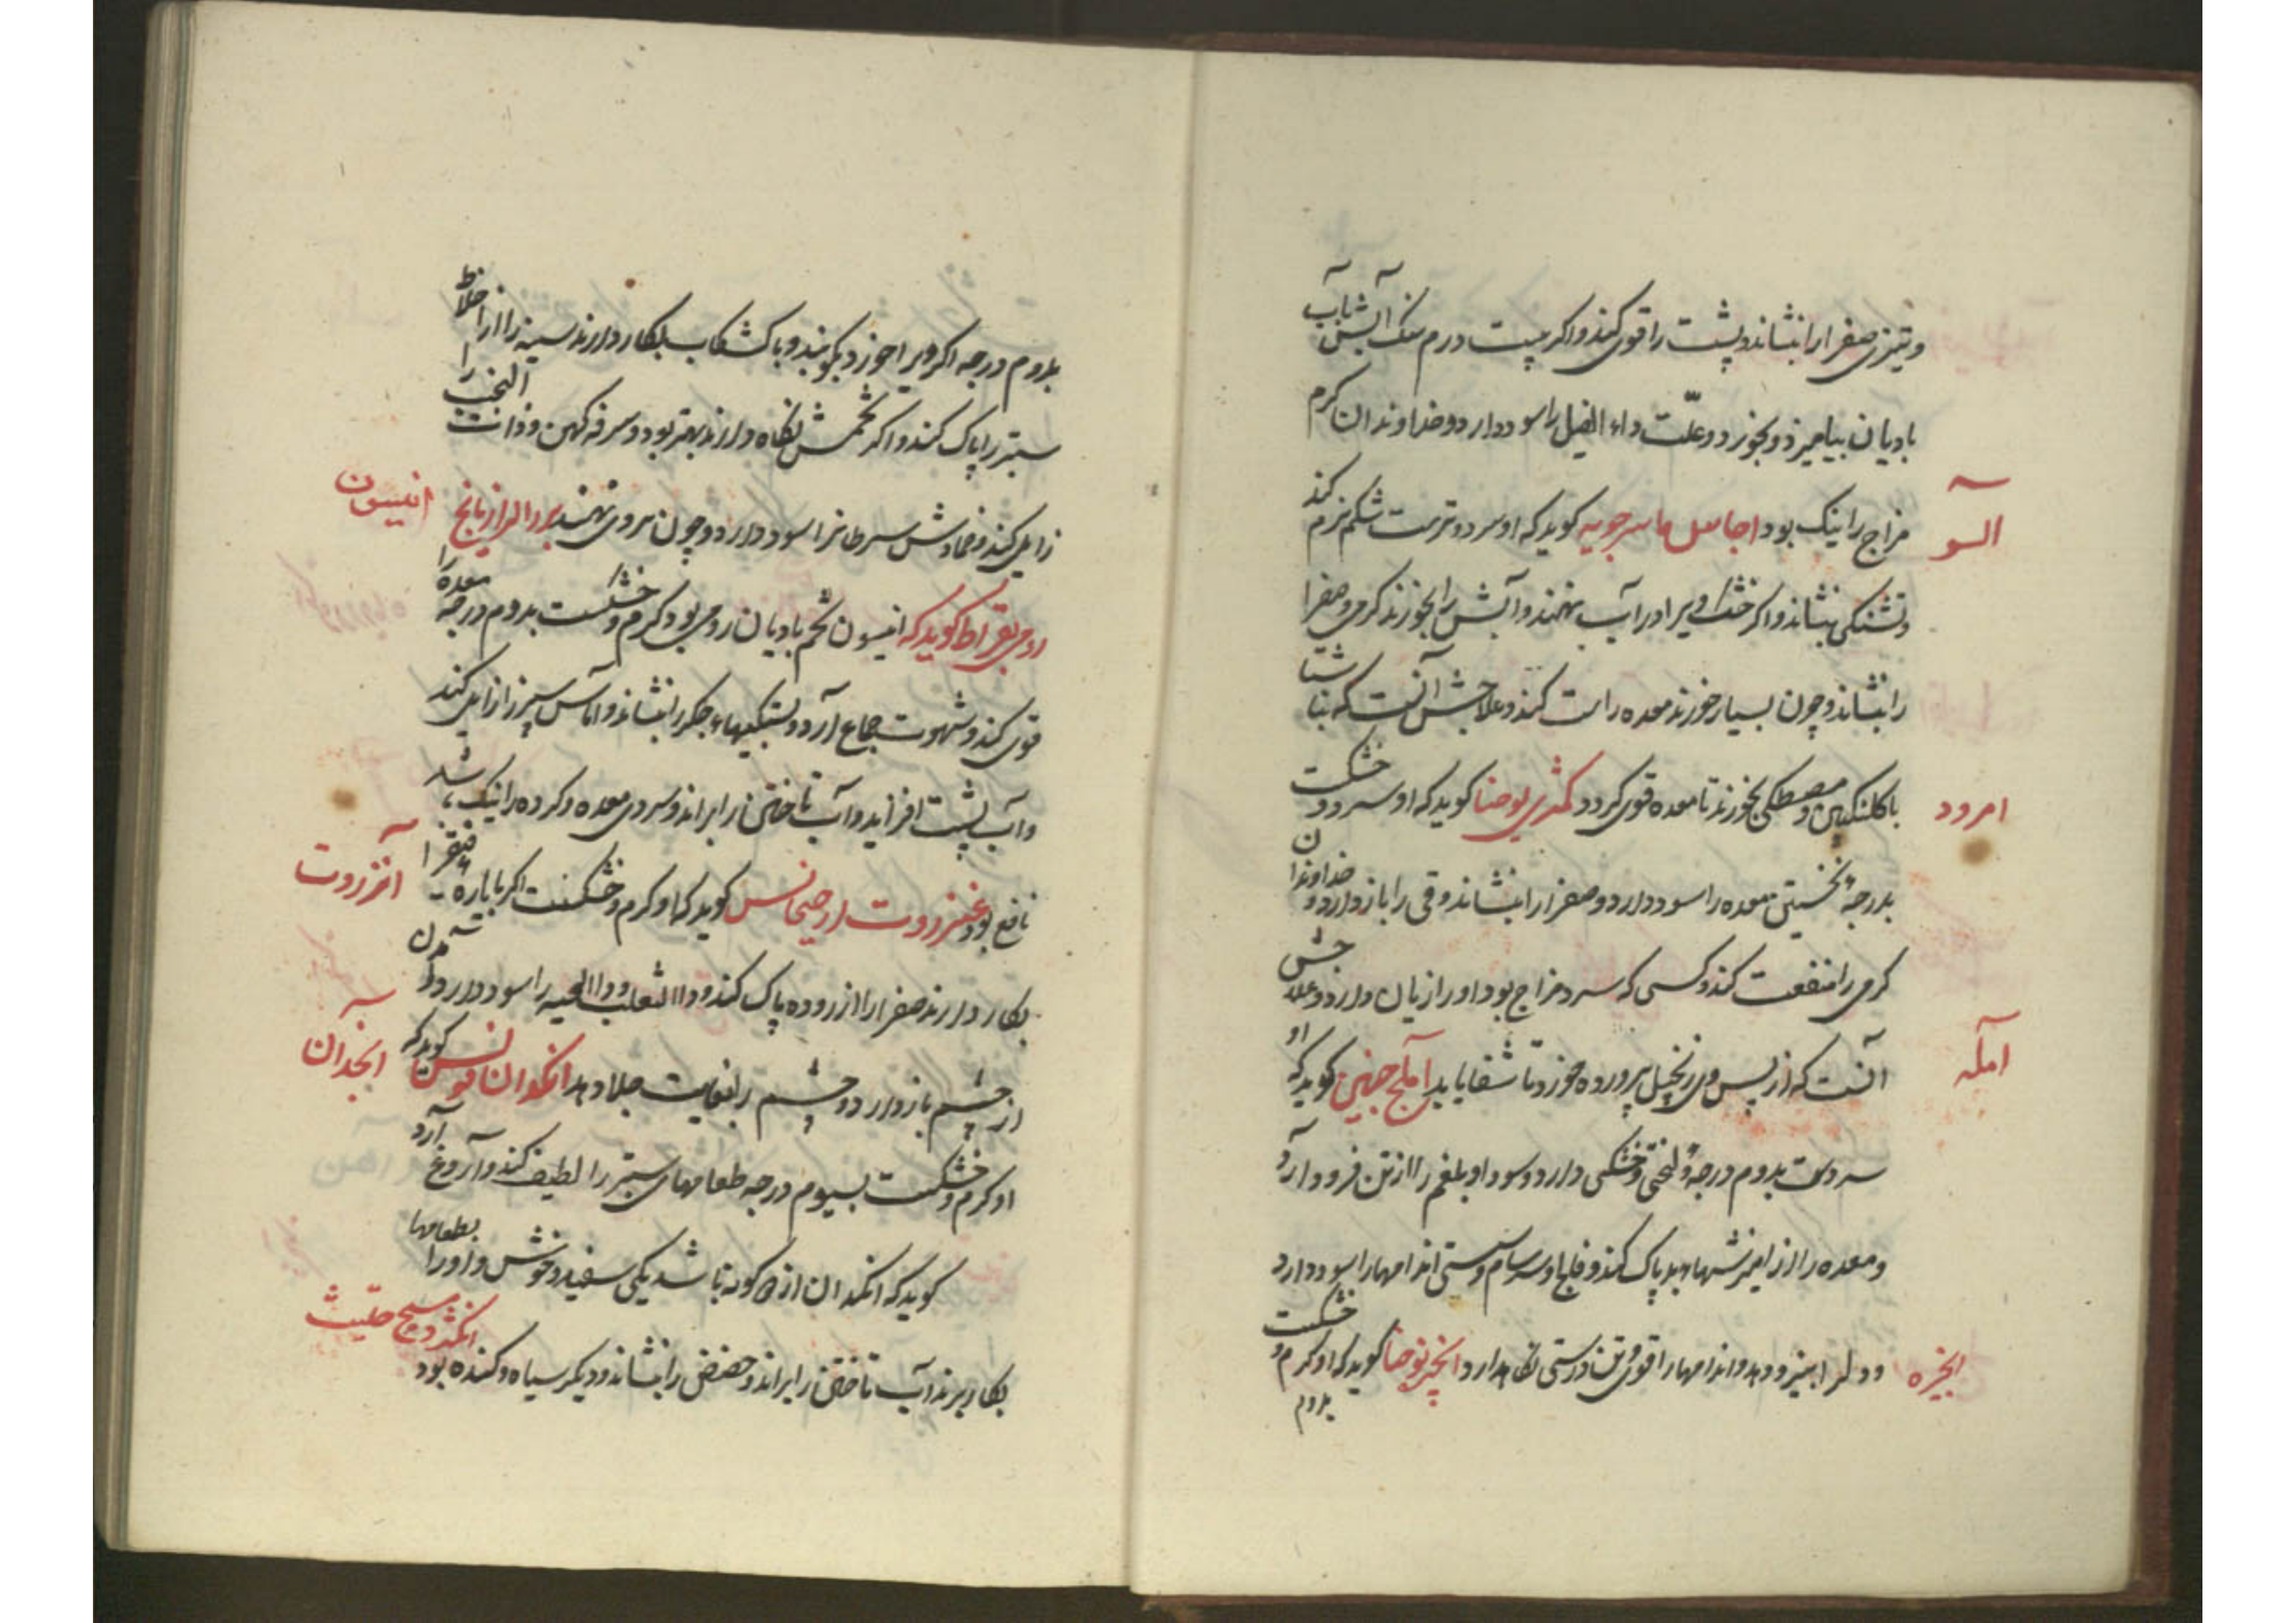 وتیزی صفرا را بنشاند و پشت را قوی کند و اکر بیست درم سنک آبش بآب
بادیان بیامیزد و بخورد و علّت داء الفیل را سود دارد و خداوندان کرم
آلو
مزاج را نیک بود اجاص ماسرجویه کوید که او سرد و ترست شکم نرم کند
و تشنکی بنشاند و اکر خشک ویرا در آب نهند و آبش را بخورند کرمی و صفرا
را بنشاند و چون بسیار خورند معده را سست کند و علاجش آنست که ناشتا
امرود
با کلنکبین و مصطکی بخورند تا معده قوی کردد کمثری یوحنا کوید که او سرد و خشکست
بدرجهٔ نخستین معده را سود دارد و صفرا را بنشاند و قی را باز دارد و خداوندان
کرمی را منفعت کند و کسی که سرد مزاج بود او را زیان دارد و علاجش
آمله
آنست که از پس وی زنجبیل پرورده خورد تا شفا یابد آملج جهنن کوید که او
سردست بدوم درجه و لختی خشکی دارد و سودا و بلغم را از تن فرود آرد
و معده را از آمیزشهاء بد پاک کند و فلج و سرسام و سستی اندامها را سود دارد
انجیره
و دل را بیفزود دهد و اندامها را قوی و تن درستی نکاه دارد انجیر یوحنا کوید که او کرم و خشکست
بدوم
بدوم درجه اکر ویرا خورد بکوبند و با کشکاب بکار دارند سینه را از اخلاط
ستبر را پاک کند و اکر تخمش نکاه دارند بهتر بود و سرفه کهن و ذات الجنب را
انیسون
زایل کند و ضمادش سرطانرا سود دارد و چون بروی نهند بزر الرازیانج
رومی بقراط کوید که انیسون تخم بادیان رومی بود کرم و خشکست بدوم درجه معده را
قوی کند و شهوت جماع آرد و بستکیهاء جکر را بنشاند و آماس سپرز را زایل کند
و آب پشت افزاید و آب تاختن را براند و سردی معده و کرده را نیک باشد
انزروت
نافع بود عنزروت ارجیجانس کوید که او کرم و خشکست اکر با پاره فیقرا
بکار دارند صفرا را از روده پاک کند و داء الثعلب و داء الحیه را سود دارد و آمدن
انجدان
از چشم باز دارد و چشم را بغایت جلا دهد انکدان فولس کوید که
او کرم و خشکست بسیوم درجه طعامهای ستبر را لطیف کند و آروغ آرد
کوید که انکدان از دو کونه باشد یکی سفید و خوش و او را بطعامها
انکژد مسیح حلتیث
بکار برند آب تاختن را براند و حیض را بنشاند و دیکر سیاه و کنده بود